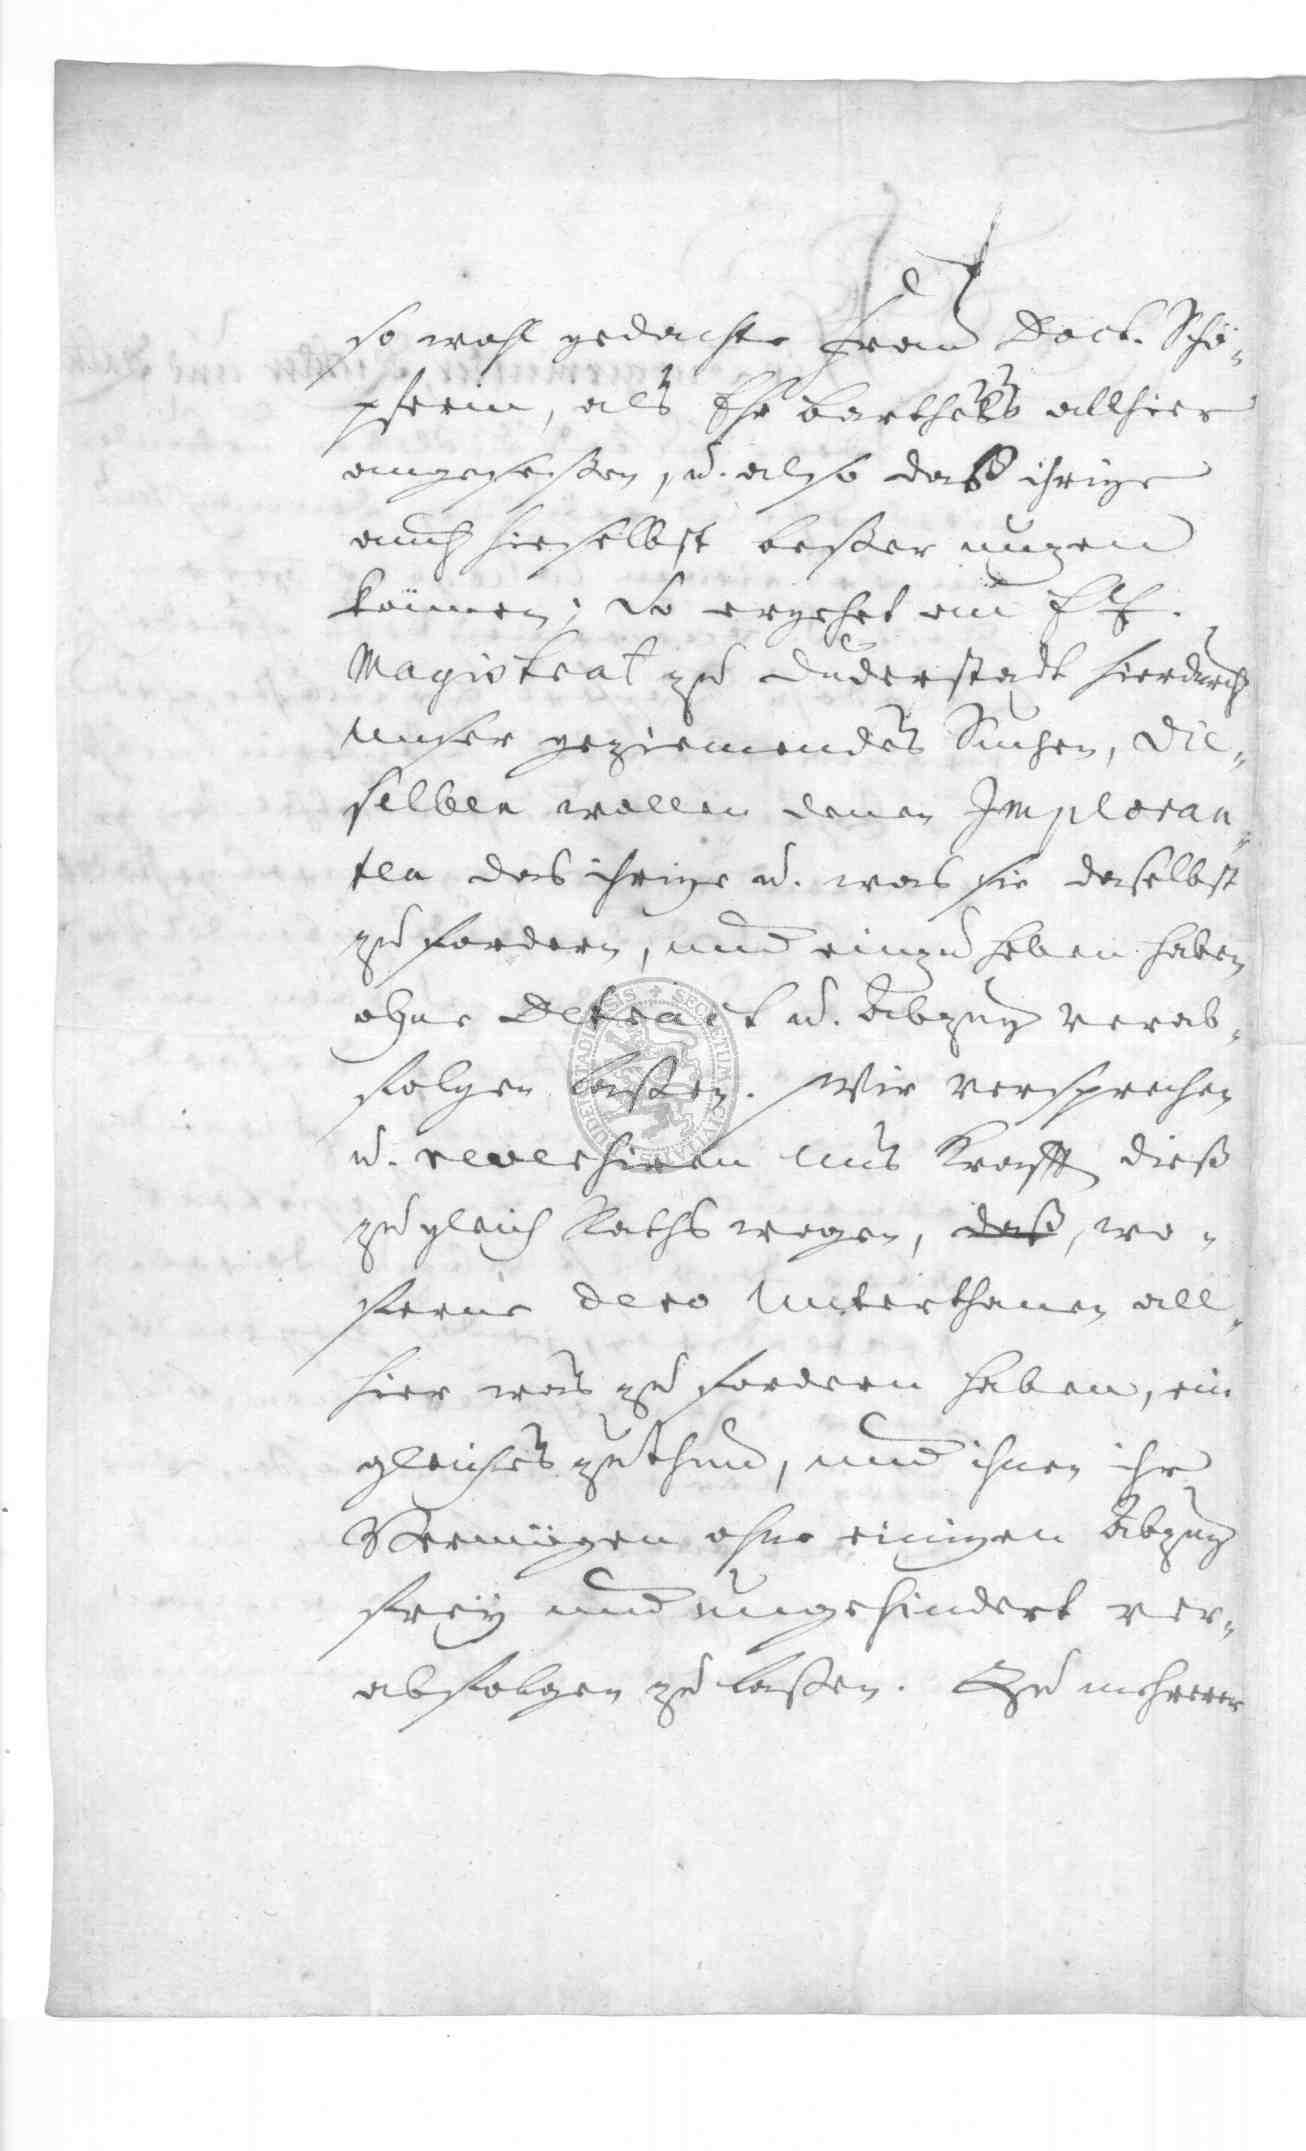 so wohl gedachte Frau Doct. Schö-
pferin, als Ehr Barthels allhier
angeseßen, u. also daß ihrige
auch hieselbst beßer nuzen
können; So ergehet an EE.
Magistrat zu Duderstadt hierdurch
unser geziemendes Suchen, die-
selben wollen denen Imploran-
ten das ihrige u. was sie daselbst
zu fordern, und einzuheben haben
ohne Detract u. Abzug verab-
folgen laßen. Wir versprechen
u. reversiren uns Krafft dieß
zugleich Raths wegen, daß, wo-
ferne dero Unterthanen all-
hier was zu fordern haben, ein
gleiches zu thun, und ihnen ihr
Vermögen ohne einigen Abzug
frey und ungehindert ver-
abfolgen zu laßen. Zu mehrerer
SECRETUM CIVI